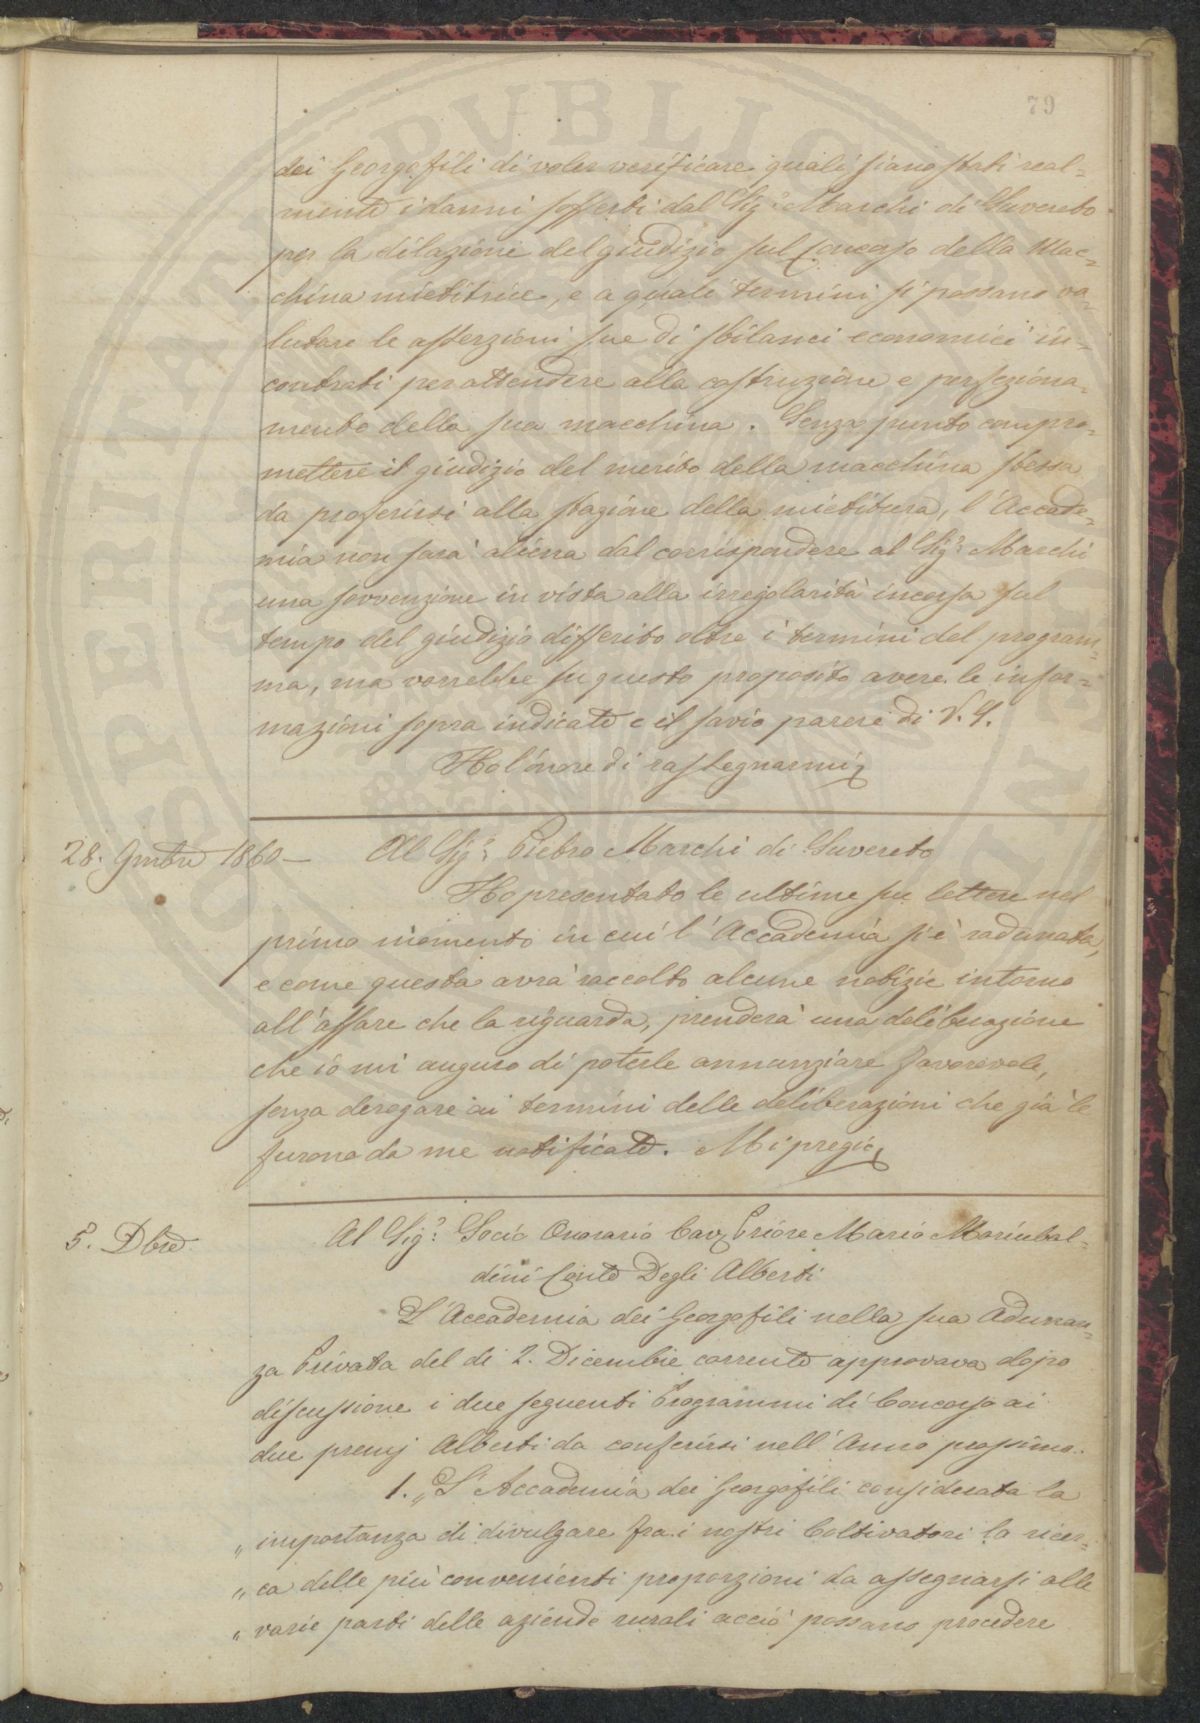 79
dei Georgofili di voler verificare quali siano stati real=
mente i danni sofferti dal Sig.r Marchi di Suvereto
per la dilazione del giudizio sul Concorso della Mac=
china mietitrice, e a quali termini si possano va=
lutare le asserzioni sue di sbilanci economici in=
contrati per attendere alla costruzione e perfeziona=
mento della sua macchina. Senza punto compro=
mettere il giudizio del merito della macchina stessa
da proferirsi alla stagione della mietitura, l'Accade=
mia non sarà aliena dal corrispondere al Sig.r Marchi
una sovvenzione in vista alla irregolarità incorsa sul
tempo del giudizio differito oltre i termini del program=
ma, ma vorrebbe su questo proposito avere le infor=
mazioni sopra indicate e il savio parere di V. S.
Ho l'onore di rassegnarmi
28. 9mbre 1860 — Al Sig.r Pietro Marchi di Suvereto
Ho presentato le ultime sue lettere nel
primo momento in cui l'Accademia si è radunata,
e come questa avrà raccolto alcune notizie intorno
all'affare che la riguarda, prenderà una deliberazione
che io mi auguro di poterle annunziare favorevole,
senza derogare ai termini delle deliberazioni che già le
furono da me notificate. Mi pregio
5. Dbre Al Sig.r Socio Onorario Cav. Priore Mario Morubal=
dini Conte Degli Alberti
L'Accademia dei Georgofili nella sua Adunan=
za Privata del dì 2. Dicembre corrente approvava dopo
discussione i due seguenti Programmi di Concorso ai
due premj Alberti da conferirsi nell'Anno prossimo.
1. „ L'Accademia dei Georgofili considerata la
„ importanza di divulgare fra i nostri Coltivatori la ricer=
„ ca delle più convenienti proporzioni da assegnarsi alle
„ varie parti delle aziende rurali acciò possano procedere